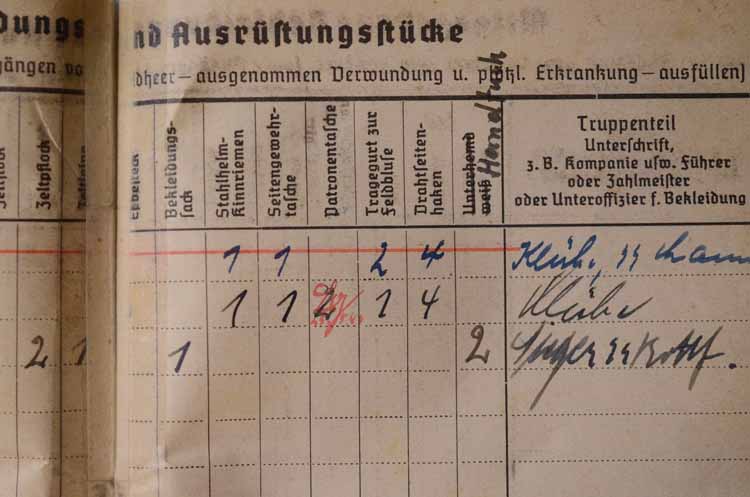 dungs nd Ausrüstungsstücke
gängen vo dheer – ausgenommen Verwundung u. plötzl. Erkrankung – ausfüllen)
Zeltpflock
Bekleidungs-
sack
Stahlhelm-
Kinnriemen
Seitengewehr-
tasche
Patronentasche
Tragegurt zur
Feldbluse
Drahtseiten-
haken
Unterhemd
weiß
Handtuch
Truppenteil
Unterschrift,
z. B. Kompanie usw. Führer
oder Zahlmeister
oder Unteroffizier f. Bekleidung
1 1 2 4
1 1 2 1 4
2 1 1 2